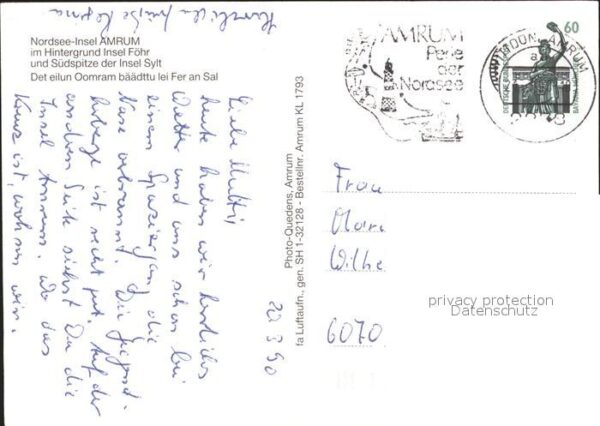 Nordsee-Insel AMRUM
im Hintergrund Insel Föhr
und Südspitze der Insel Sylt
Det eilun Oomram bäädttu lei Fer an Sal
20 3 90
Liebe Mutti,
heute haben wir herrliches
Wetter und uns schon bei
einem Spaziergang die
Nase verbrannt. Die Jugend-
herberge ist recht gut. Auf der
anderen Seite siehst Du die
Insel Amrum. Wo das
Kreuz ist, wohnen wir.
Herzliche Grüße
Photo-Quedens, Amrum
fa Luftaufn., gen. SH 1-32128 - Bestellnr. Amrum KL 1793
AMRUM
Perle
der
Nordsee
60
AMRUM
Frau
Wilhe
6070
privacy protection
Datenschutz